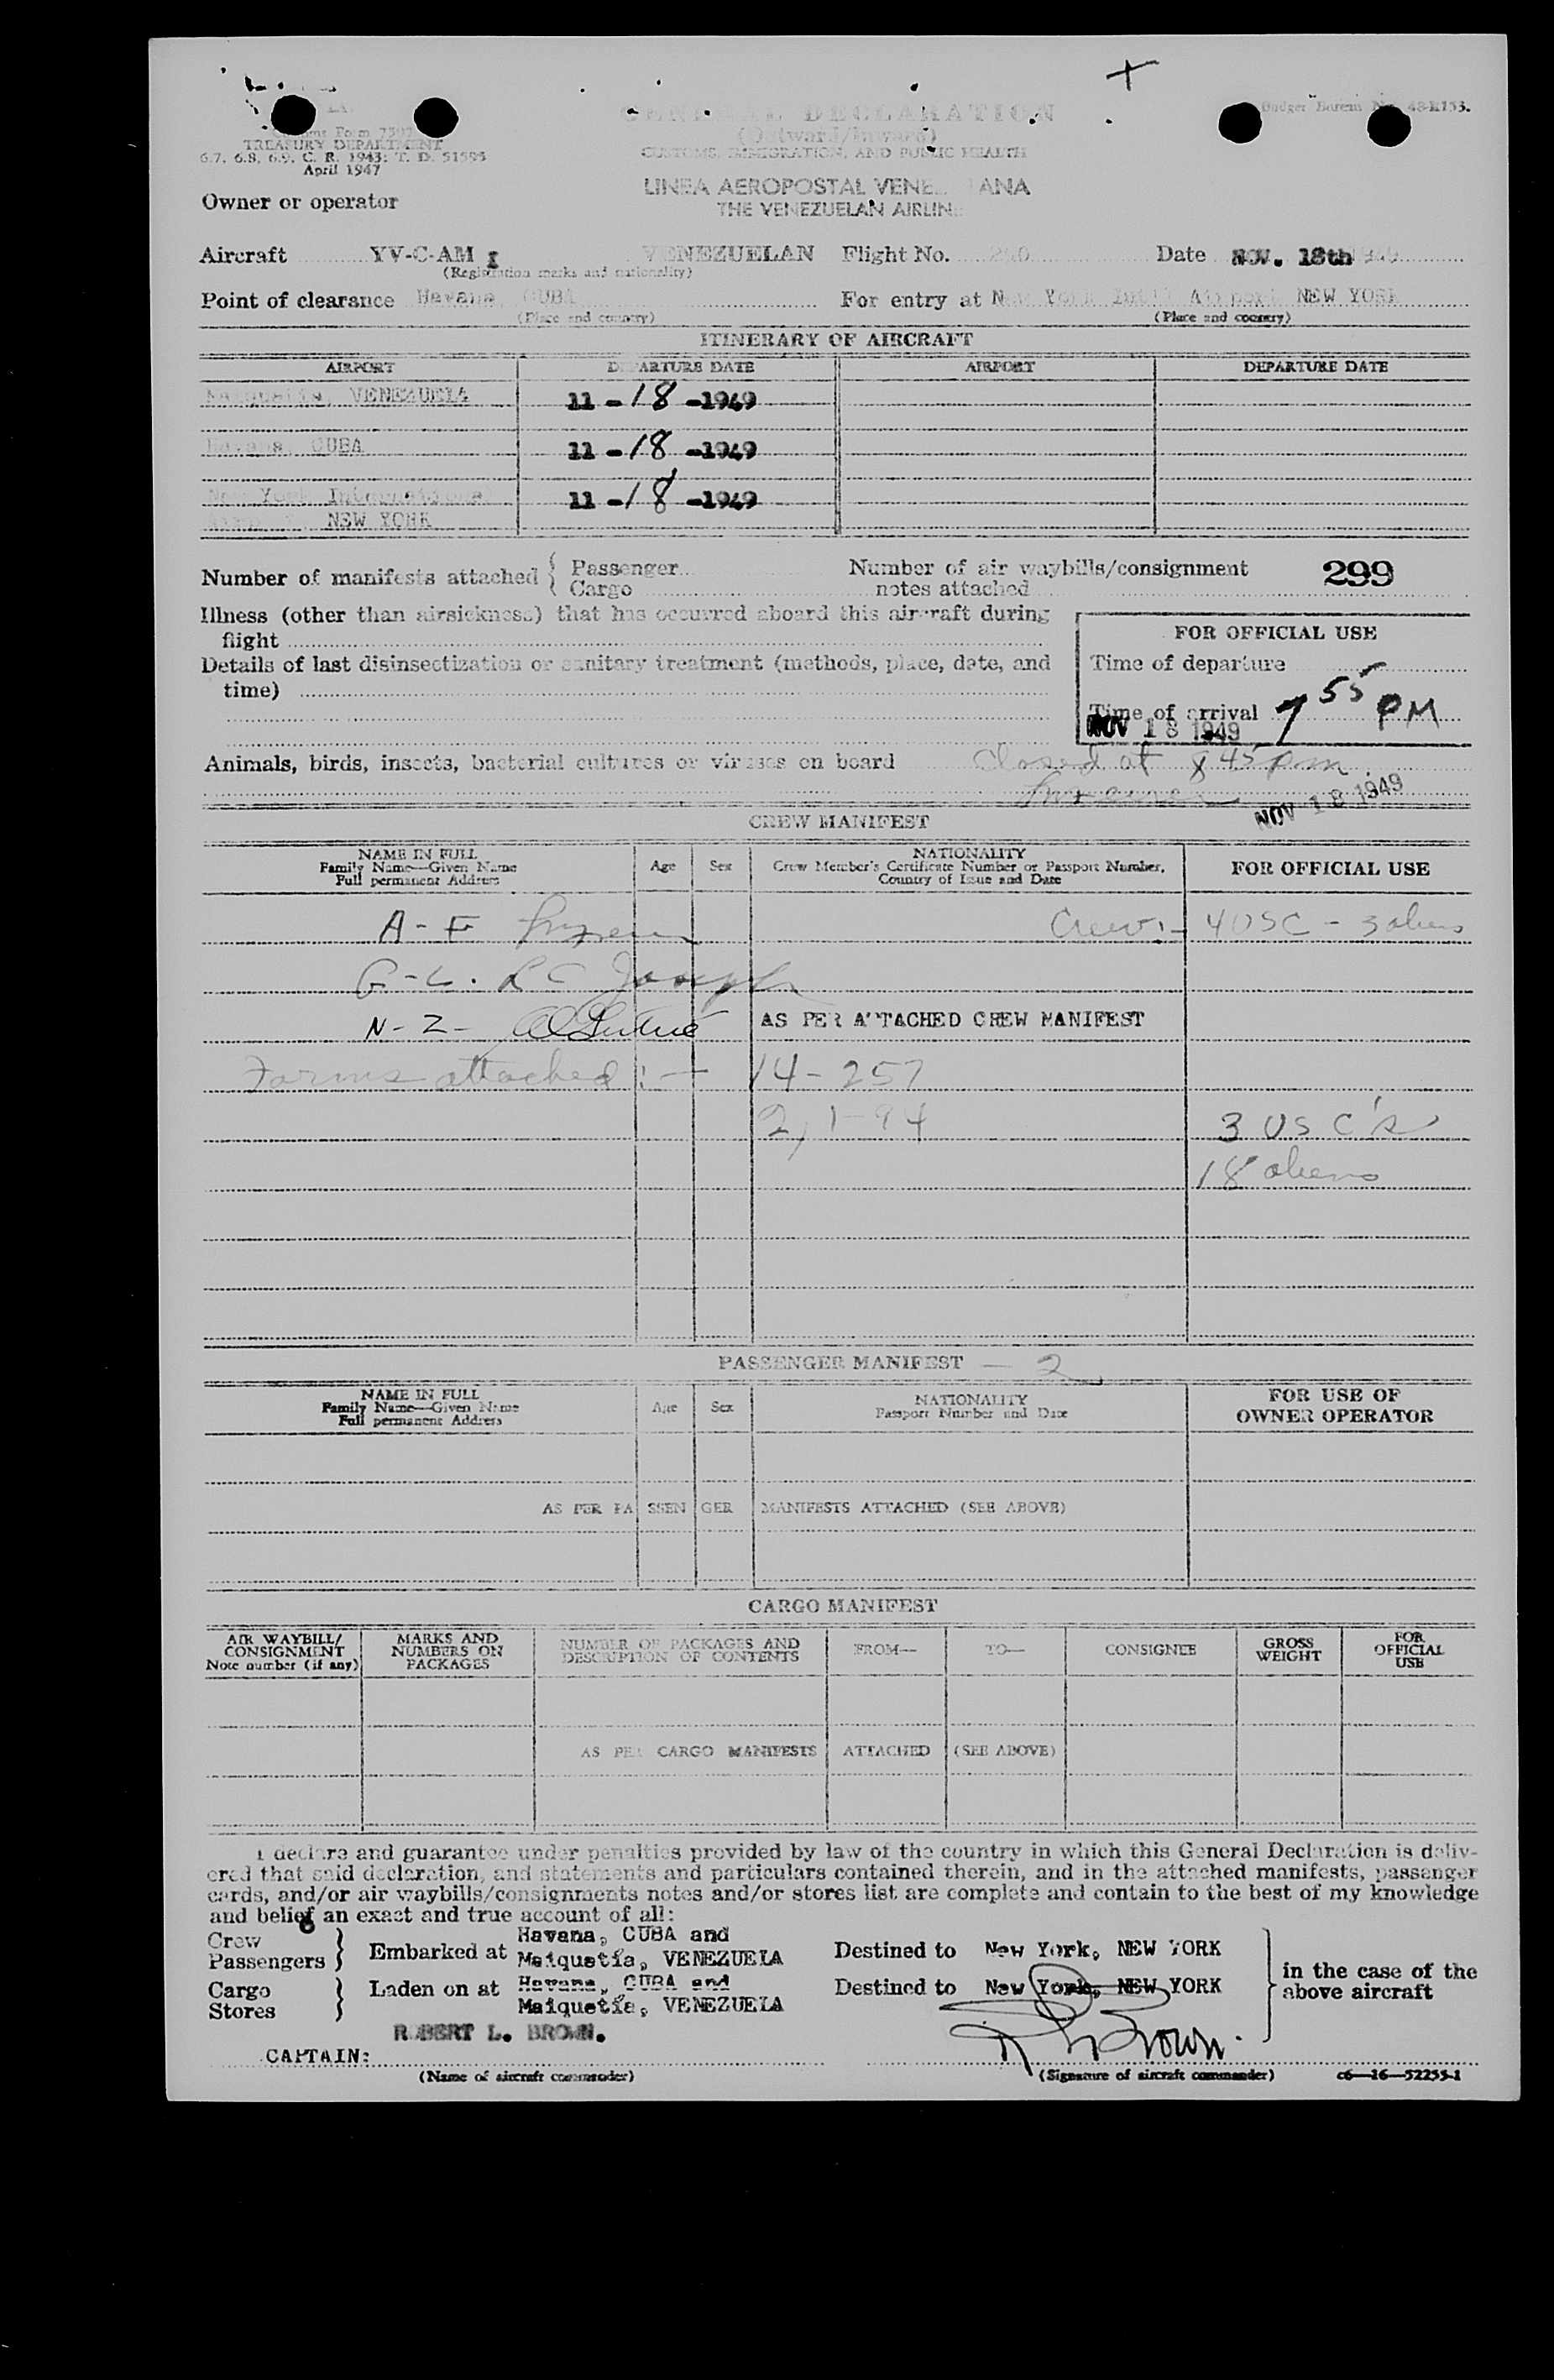 GENERAL DECLARATION
(Outward/Inward)
CUSTOMS, IMMIGRATION, AND PUBLIC HEALTH
Budget Bureau No. 48-R153.
Customs Form 7507
TREASURY DEPARTMENT
6.7, 6.8, 6.9, C. R. 1943; T. D. 51595
April 1947
LINEA AEROPOSTAL VENE ANA
THE VENEZUELAN AIRLIN
Owner or operator
Aircraft YV-C-AM I VENEZUELAN Flight No. Date NOV. 18th
(Registration marks and nationality)
Point of clearance Havana, CUBA For entry at New York Airport NEW YORK
(Place and country) (Place and country)
ITINERARY OF AIRCRAFT
AIRPORT DEPARTURE DATE AIRPORT DEPARTURE DATE
Maiquetia, VENEZUELA 11 - 18 -1949
Havana, CUBA 11 - 18 -1949
New York International 11 - 18 -1949
NEW YORK
Number of manifests attached { Passenger
Cargo
Number of air waybills/consignment
notes attached 299
Illness (other than airsickness) that has occurred aboard this aircraft during
flight
Details of last disinsectization or sanitary treatment (methods, place, date, and
time)
FOR OFFICIAL USE
Time of departure
Time of arrival 7 55 PM
NOV 18 1949
Animals, birds, insects, bacterial cultures or viruses on board Closed at 8 45 pm
NOV 18 1949
CREW MANIFEST
NAME IN FULL
Family Name—Given Name
Full permanent Address
Age Sex
NATIONALITY
Crew Member's Certificate Number or Passport Number,
Country of Issue and Date
FOR OFFICIAL USE
A - F Crew:- 4 USC - 3 aliens
G - L. Joseph
N - Z - AS PER ATTACHED CREW MANIFEST
Forms attached :- 14 - 257
2, 1-94 3 USC's
18 aliens
PASSENGER MANIFEST — 2
NAME IN FULL
Family Name—Given Name
Full permanent Address
Age Sex
NATIONALITY
Passport Number and Date
FOR USE OF
OWNER OPERATOR
AS PER PA SSEN GER MANIFESTS ATTACHED (SEE ABOVE)
CARGO MANIFEST
AIR WAYBILL/
CONSIGNMENT
Note number (if any)
MARKS AND
NUMBERS ON
PACKAGES
NUMBER OF PACKAGES AND
DESCRIPTION OF CONTENTS
FROM— TO— CONSIGNEE
GROSS
WEIGHT
FOR
OFFICIAL
USE
AS PER CARGO MANIFESTS ATTACHED (SEE ABOVE)
I declare and guarantee under penalties provided by law of the country in which this General Declaration is deliv-
ered that said declaration, and statements and particulars contained therein, and in the attached manifests, passenger
cards, and/or air waybills/consignments notes and/or stores list are complete and contain to the best of my knowledge
and belief an exact and true account of all:
Crew
Passengers } Embarked at Havana, CUBA and
Maiquetía, VENEZUELA Destined to New York, NEW YORK
Cargo
Stores } Laden on at Havana, CUBA and
Maiquetía, VENEZUELA Destined to New York, NEW YORK
} in the case of the
above aircraft
ROBERT L. BROWN.
CAPTAIN: R L Brown.
(Name of aircraft commander) (Signature of aircraft commander) c6—16—52255-1